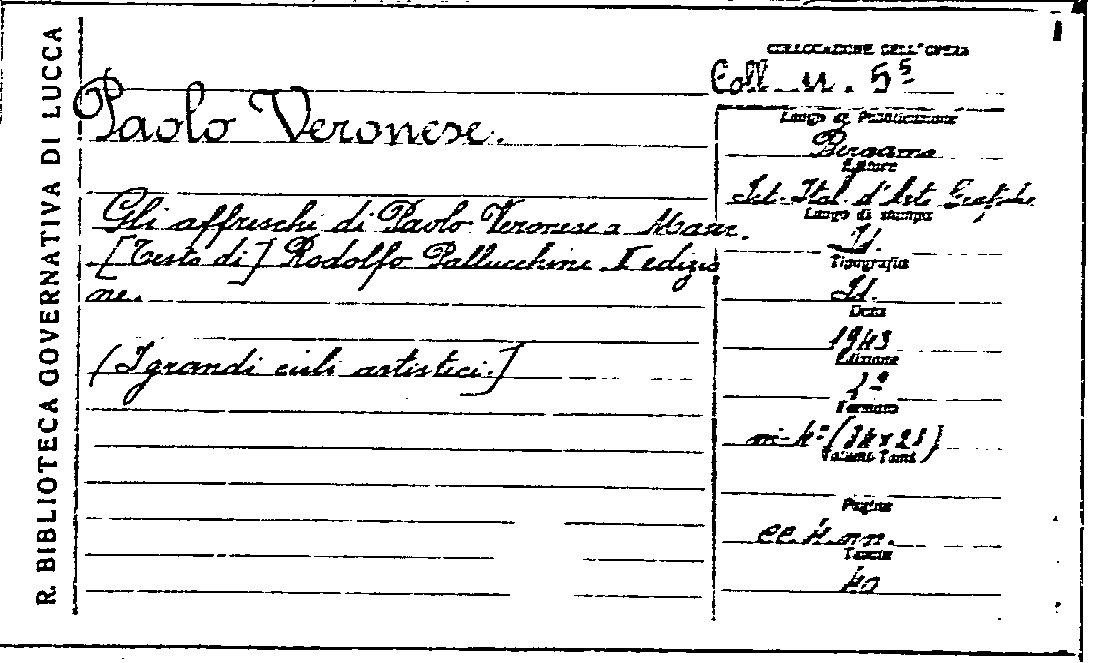 R. BIBLIOTECA GOVERNATIVA DI LUCCA
COLLOCAZIONE DELL'OPERA
Coll. n. 5⁵
Paolo Veronese.
Gli affreschi di Paolo Veronese a Maser.
[Testo di] Rodolfo Pallucchini I edizio
ne.
(I grandi cicli artistici.]
Luogo di Pubblicazione
Bergamo
Editore
Ist. Ital. d'Arti Grafiche
Luogo di stampa
Id.
Tipografia
Id.
Data
1943
Edizione
1ª
Formato
in-4º (34x25)
Volumi Tomi
Pagine
cc. 4.nn.
Tavole
40